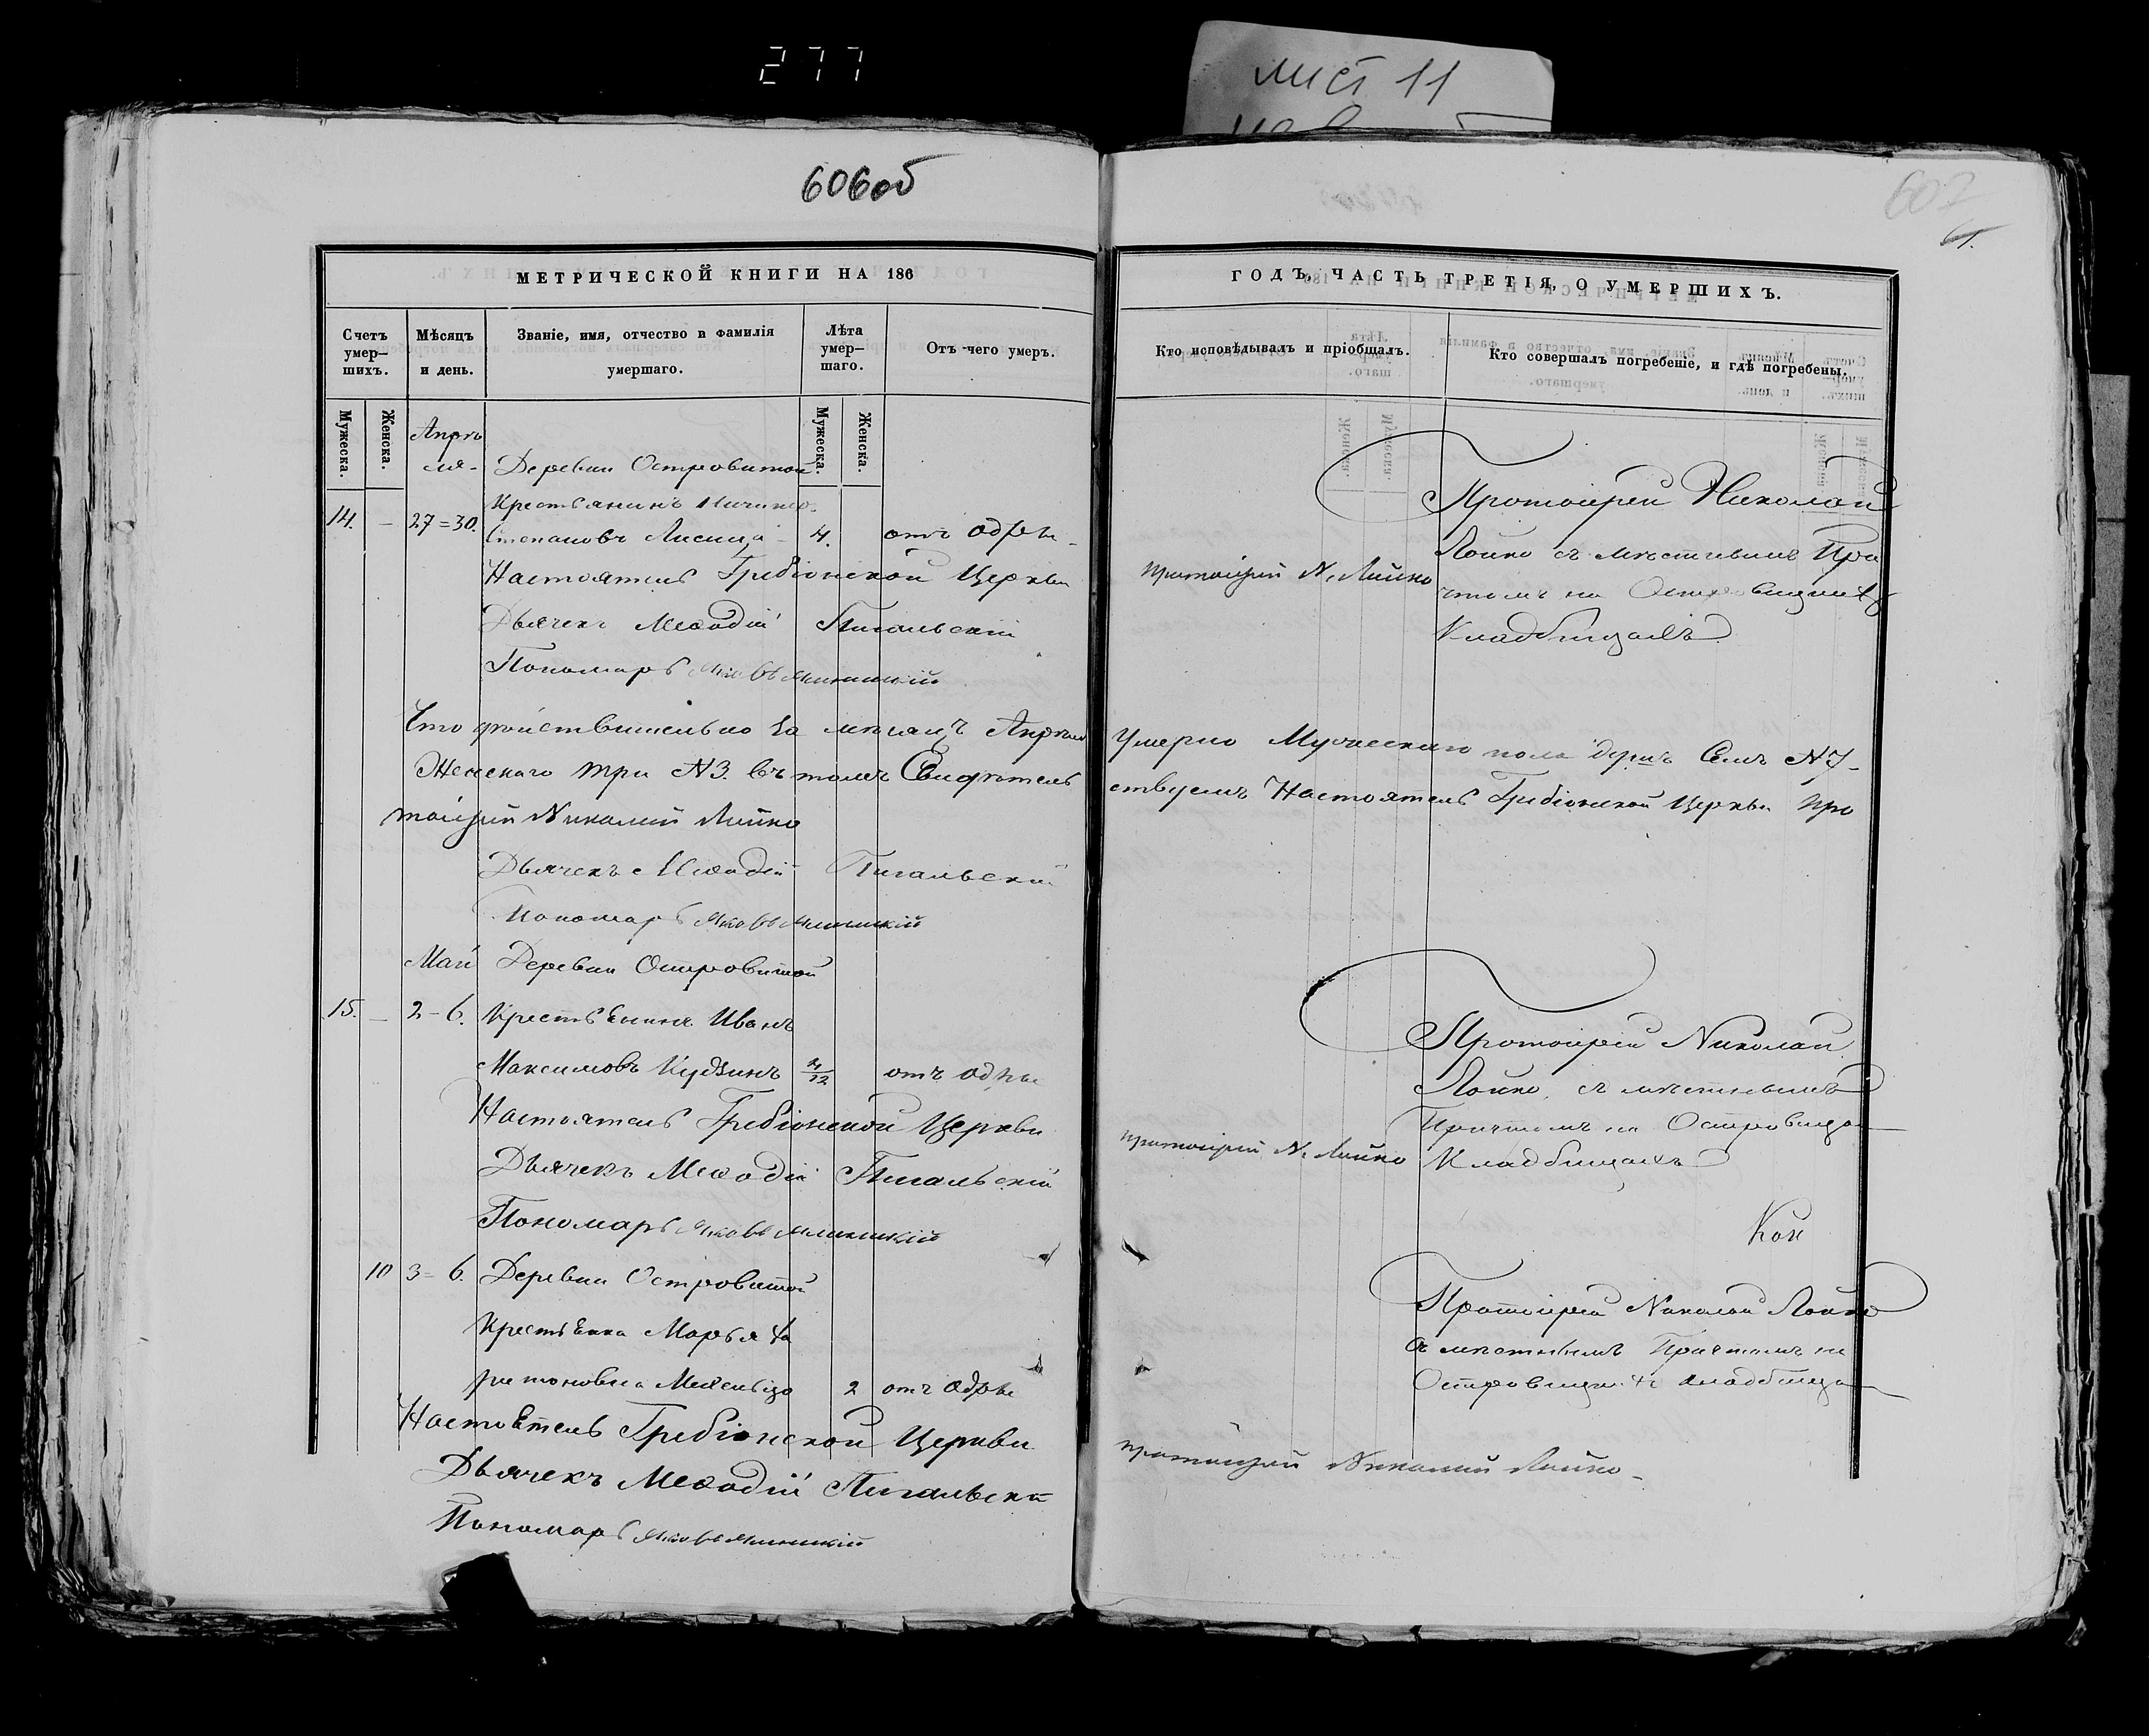 277
лист 11
606об
607
МЕТРИЧЕСКОЙ КНИГИ НА 186
ГОДЪ, ЧАСТЬ ТРЕТІЯ, О УМЕРШИХЪ.
Счетъ умер-шихъ.
Мѣсяцъ и день.
Званіе, имя, отчество и фамилія умершаго.
Лѣта умер-шаго.
Отъ чего умеръ.
Кто исповѣдывалъ и пріобщалъ.
Кто совершалъ погребеніе, и гдѣ погребены.
Мужеска.
Женска.
Мужеска.
Женска.
Апрѣ
ля-
Деревни Островитой
Крестьянинъ
14. - 27=30. Степановъ Лисица 4. отъ одры
Настоятель Грибіонской Церкви
Протоіерей Н. Лойко
Дьячекъ Меѳодій Пигальскій
Пономарь Яковъ
Протоіерей Николай
Лойко съ мѣстнымъ При
чтомъ на
Кладбищахъ
Что дѣйствительно за мѣсяцъ Апрѣль Умерло Мужескаго пола душъ Семь №7-
Женскаго три №3. въ томъ Свидѣтель ствуемъ Настоятель Грибіонской Церкви Про
тоіерей Николай Лойко
Дьячекъ Меѳодій Пигальскій
Пономарь Яковъ
Май Деревни Островитой
15. - 2-6. Крестьянинъ Иванъ
Максимовъ отъ одры
Настоятель Грибіонской Церкви
Протоіерей Н. Лойко
Дьячекъ Меѳодій Пигальскій
Пономарь Яковъ
Протоіерей Николай
Лойко, съ мѣстнымъ
Причтомъ на
Кладбищахъ
Кон
10 3=6. Деревни Островитой
Крестьянка Марья Ха
ритоновна 2 отъ одры
Настоятель Грибіонской Церкви
Протоіерей Николай Лойко-
Дьячекъ Меѳодій Пигальскій
Пономарь Яковъ
Протоіерей Николай Лойко
съ мѣстнымъ Причтомъ на